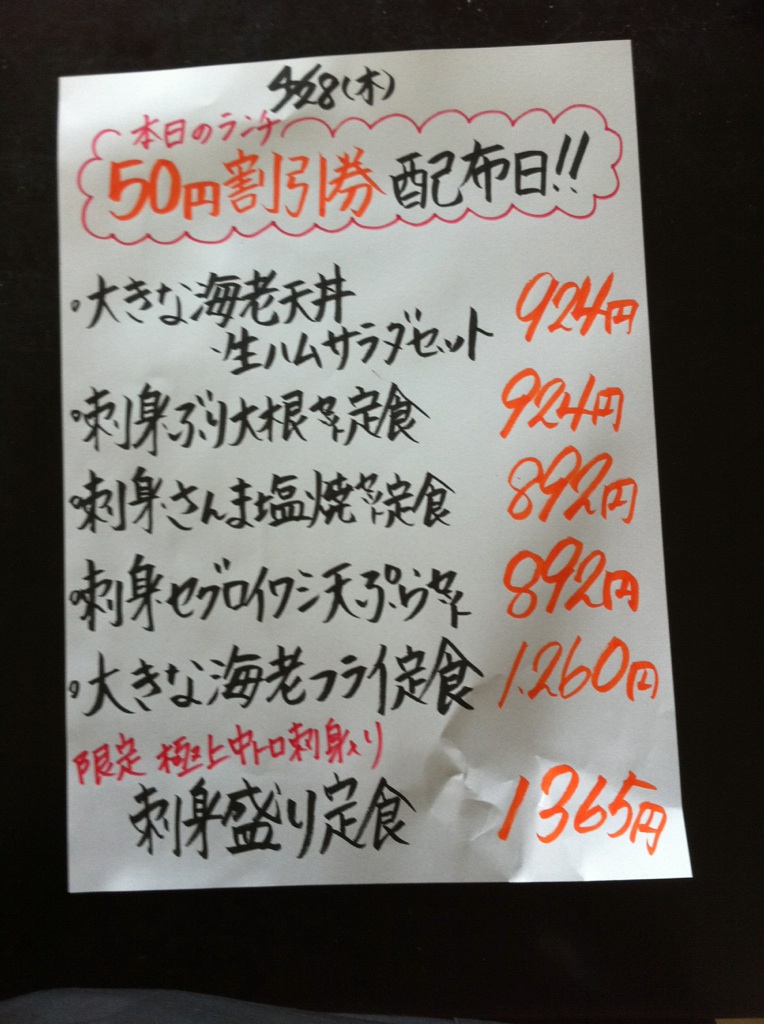 4/28(木)
本日のランチ
50円割引券 配布日!!
・大きな海老天丼
・生ハムサラダセット 924円
・刺身ぶり大根セット定食 924円
・刺身さんま塩焼セット定食 892円
・刺身セグロイワシ天ぷらセット 892円
・大きな海老フライ定食 1.260円
限定 極上中トロ刺身入り
刺身盛り定食 1365円